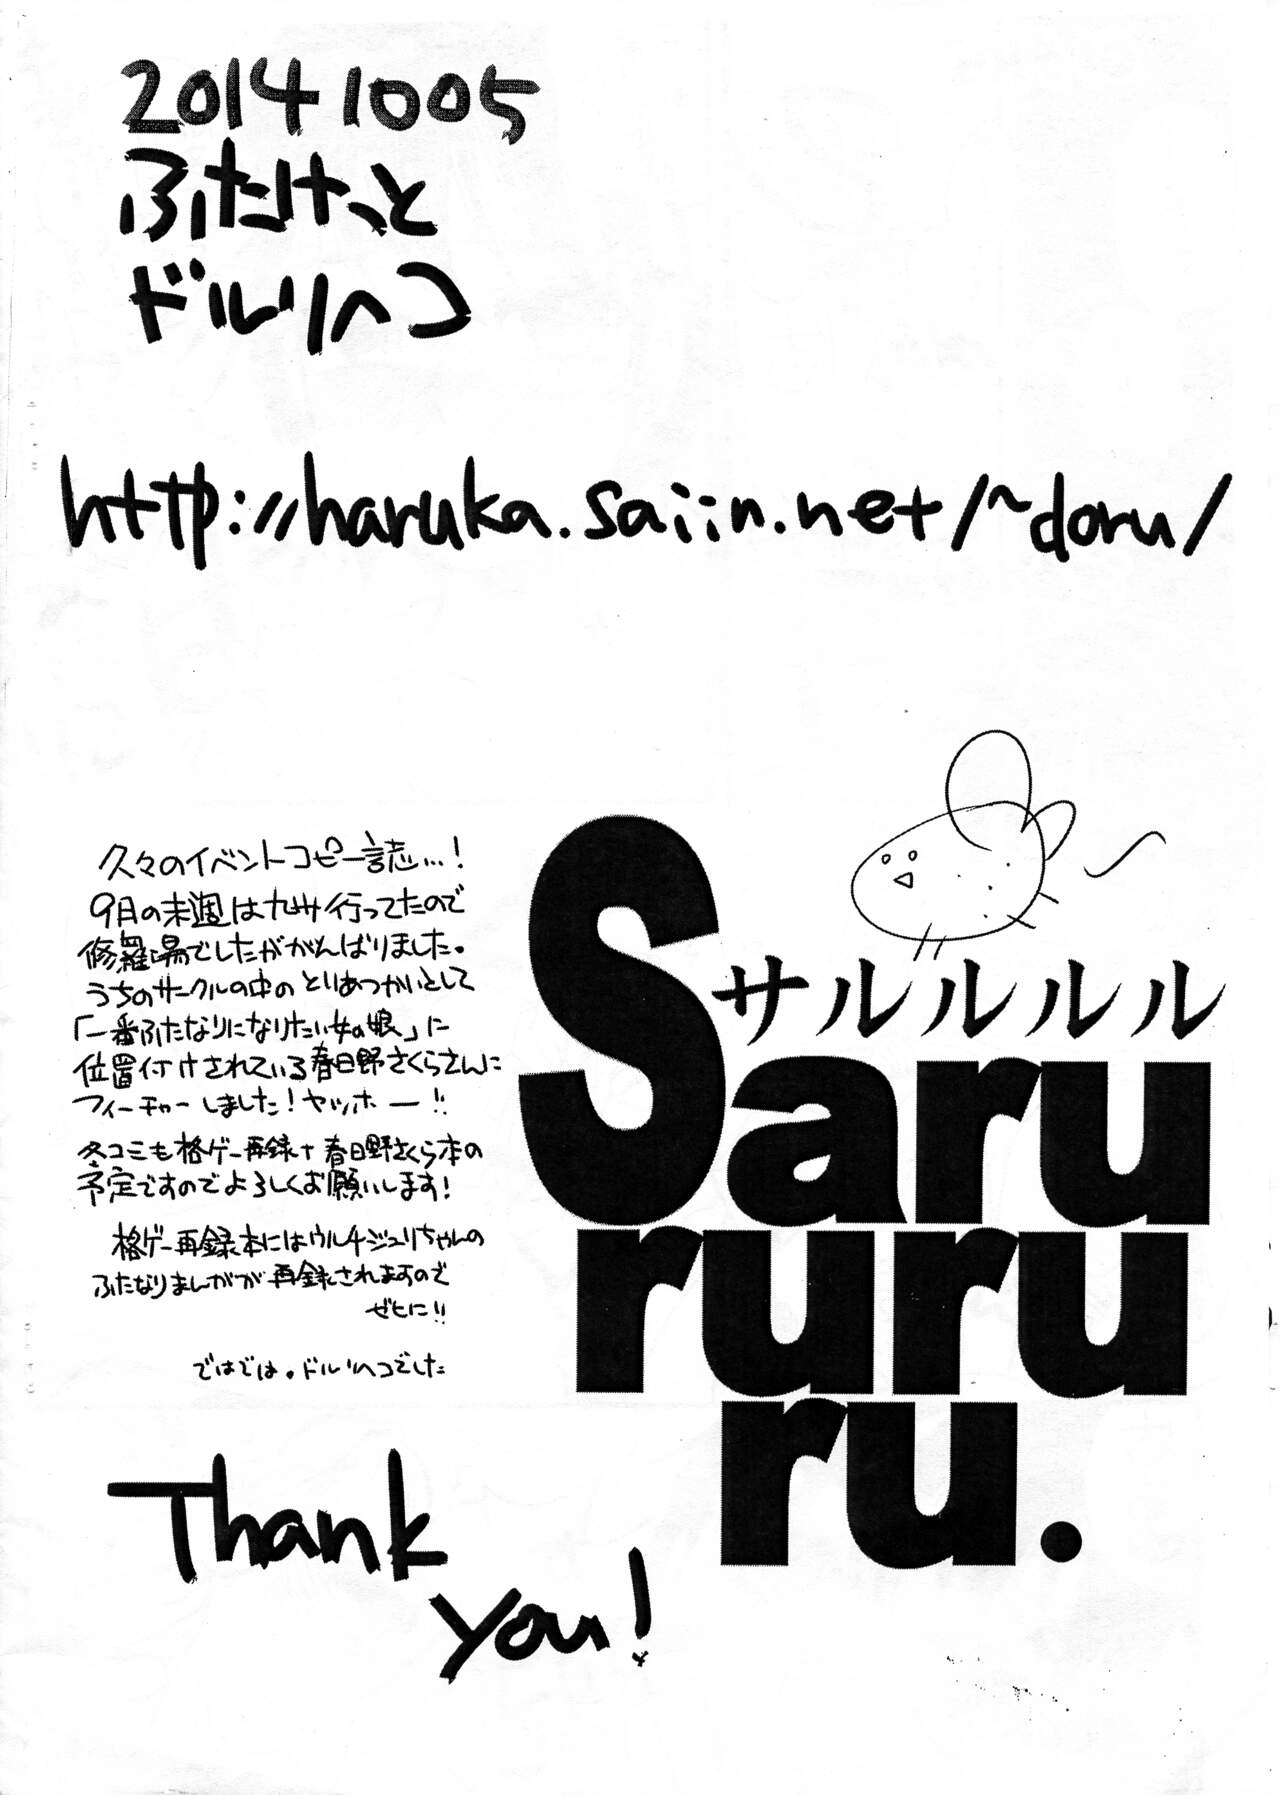 20141005
ふたけっと
ドルリヘコ
http://haruka.saiin.net/~doru/
久々のイベントコピー誌…!
9月の末週は九州行ってたので
修羅場でしたががんばりました。
うちのサークルの中のとりあつかいとして
「一番ふたなりになりたい女の娘」に
位置付けされている春日野さくらさんに
フィーチャーしました!ヤッホー!!
冬コミも格ゲー再録+春日野さくら本の
予定ですのでよろしくお願いします!
格ゲー再録本にはウルチジュリちゃんの
ふたなりまんがが再録されますので
ぜひに!!
ではでは。ドルリヘコでした
サルルルル
Saru
ruru
ru.
Thank
you!